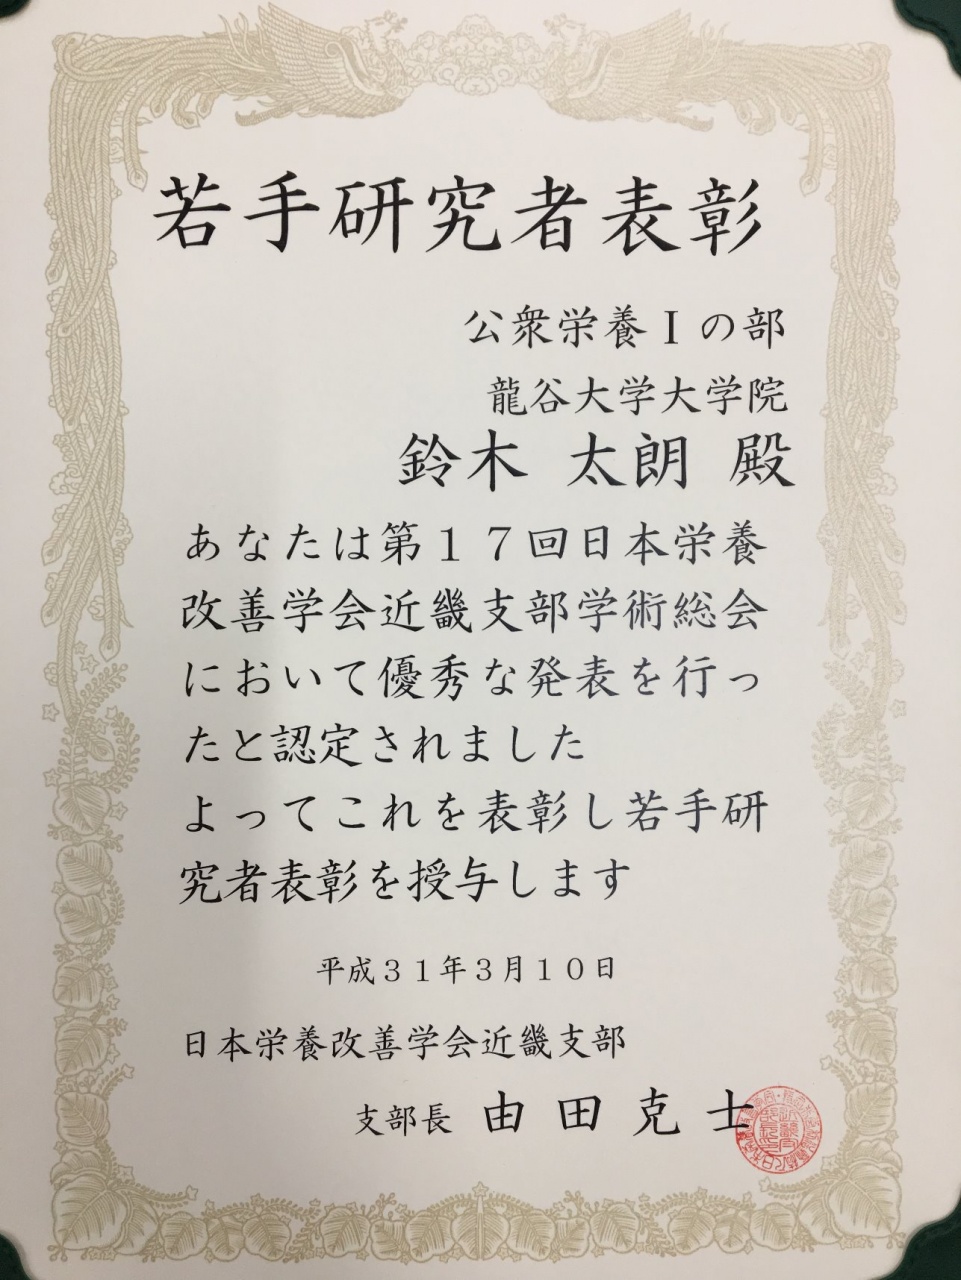 若手研究者表彰
公衆栄養Ⅰの部
龍谷大学大学院
鈴木 太朗 殿
あなたは第１７回日本栄養
改善学会近畿支部学術総会
において優秀な発表を行っ
たと認定されました
よってこれを表彰し若手研
究者表彰を授与します
平成３１年３月１０日
日本栄養改善学会近畿支部
支部長 由田克士